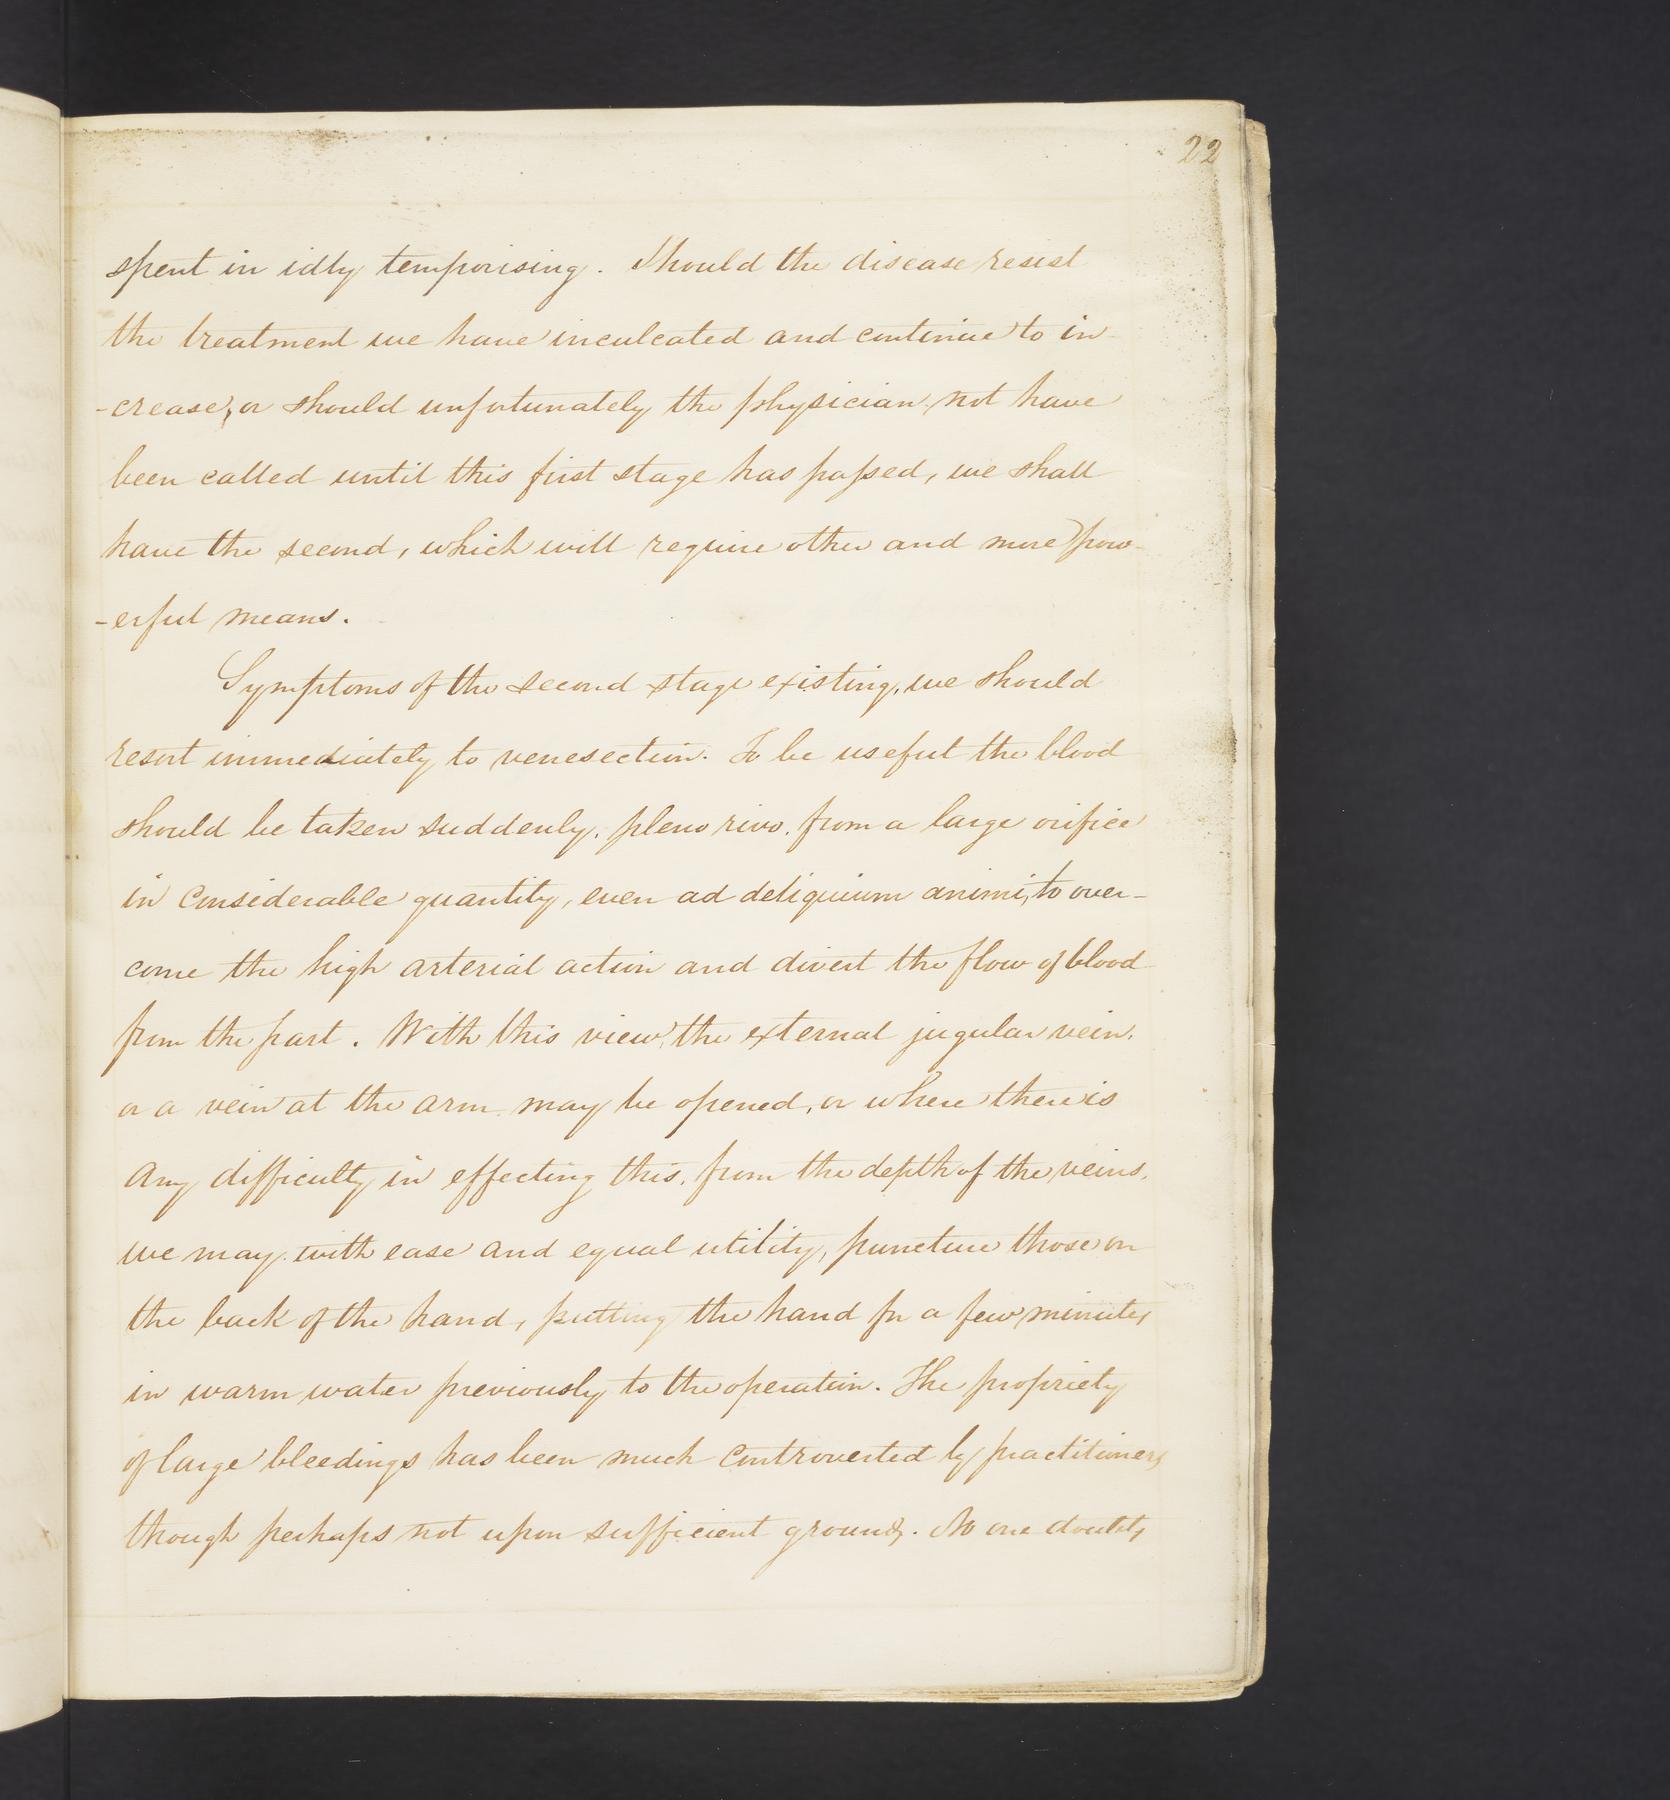 22
spent in idly temporising. Should the disease resist
the treatment we have inculcated and continue to in-
-crease, or should unfortunately the physician not have
been called until this first stage has paſsed, we shall
have the second, which will require other and more pow-
-erful means.
Symptoms of the second stage existing, we should
resort immediately to venesection. To be useful the blood
should be taken suddenly, pleno rivo, from a large orifice
in considerable quantity, even ad deliquium animi, to over-
come the high arterial action and divert the flow of blood
from the part. With this view, the external jugular vein,
or a vein at the arm may be opened, or where there is
any difficulty in effecting this, from the depth of the veins,
we may with ease and equal utility, puncture those on
the back of the hand, putting the hand for a few minutes
in warm water previously to the operation. The propriety
of large bleedings has been much controverted by practitioners
though perhaps not upon sufficient grounds. No one doubts